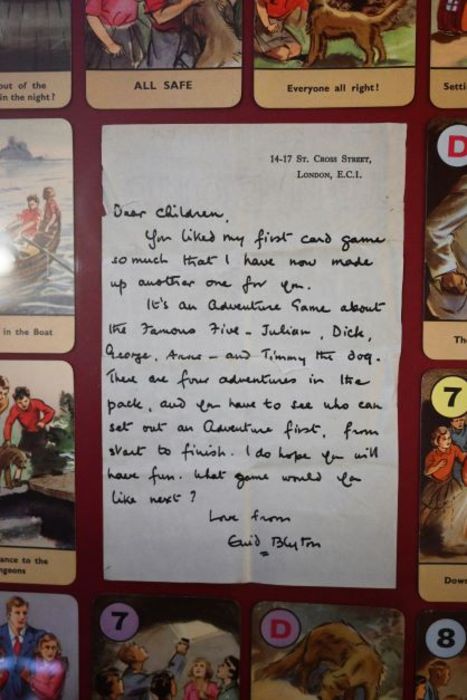 out of the
in the night?
ALL SAFE
Everyone all right!
Setti
14-17 St. Cross Street,
London, E.C.1.
Dear Children,
You liked my first card game
so much that I have now made
up another one for you.
It's an Adventure Game about
the Famous Five - Julian, Dick,
George, Anne - and Timmy the dog.
There are four adventures in the
pack, and you have to see who can
set out an Adventure first, from
start to finish. I do hope you will
have fun. What game would you
like next?
Love from
Enid Blyton
D
in the Boat
Th
7
ance to the
ngeons
Dow
7
D
8